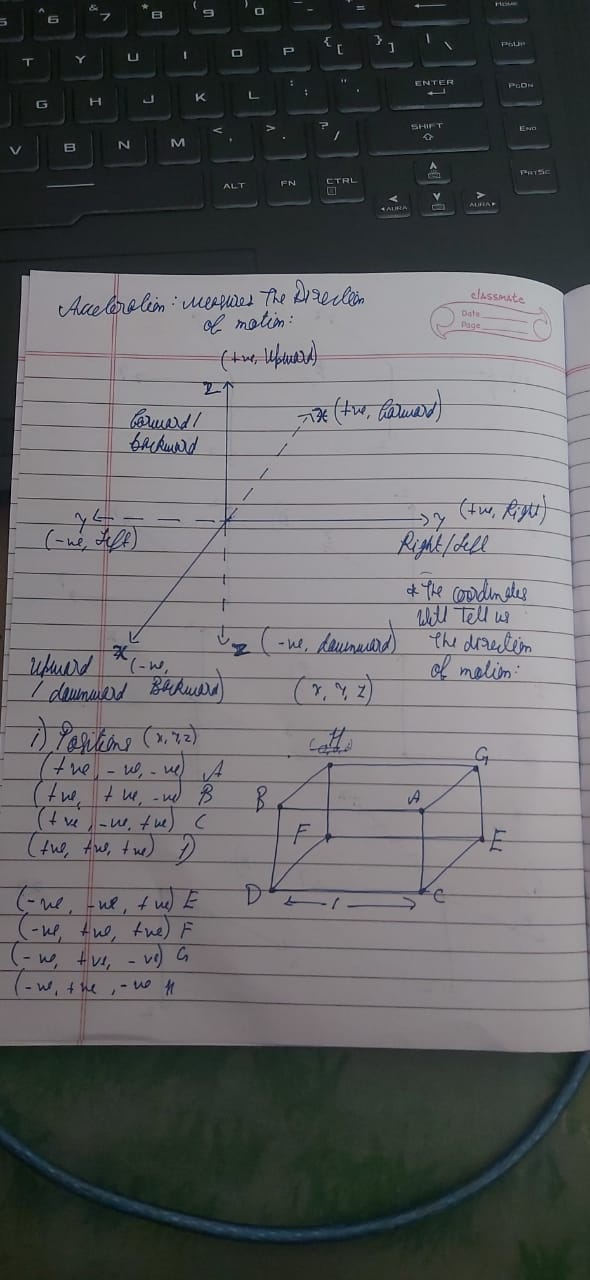 ^ 6
& 7
* 8
( 9
) 0
_ -
+ =
HOME
T Y U I O P { [ } ] | \ PGUP
G H J K L : ; " ' ENTER PGDN
V B N M < , > . ? / SHIFT END
ALT FN CTRL PRTSC
AURA AURA
classmate
Date
Page
Acceleration: measures The Direction
of motion:
(+ve, Upward)
Z
forward/
backward
x (+ve, forward)
y
(-ve, Left)
y (+ve, Right)
Right/Left
* The coordinates
Will Tell us
The direction
of motion:
x
(-ve,
Backward)
Upward
/ downward
z (-ve, downward)
(x, y, z)
i) Positions (x,y,z)
(+ve, -ve, -ve) A
(+ve, +ve, -ve) B
(+ve, -ve, +ve) C
(+ve, +ve, +ve) D
(-ve, -ve, +ve) E
(-ve, +ve, +ve) F
(-ve, +ve, -ve) G
(-ve, +ve, -ve H
H
G
B
A
F
E
D
C